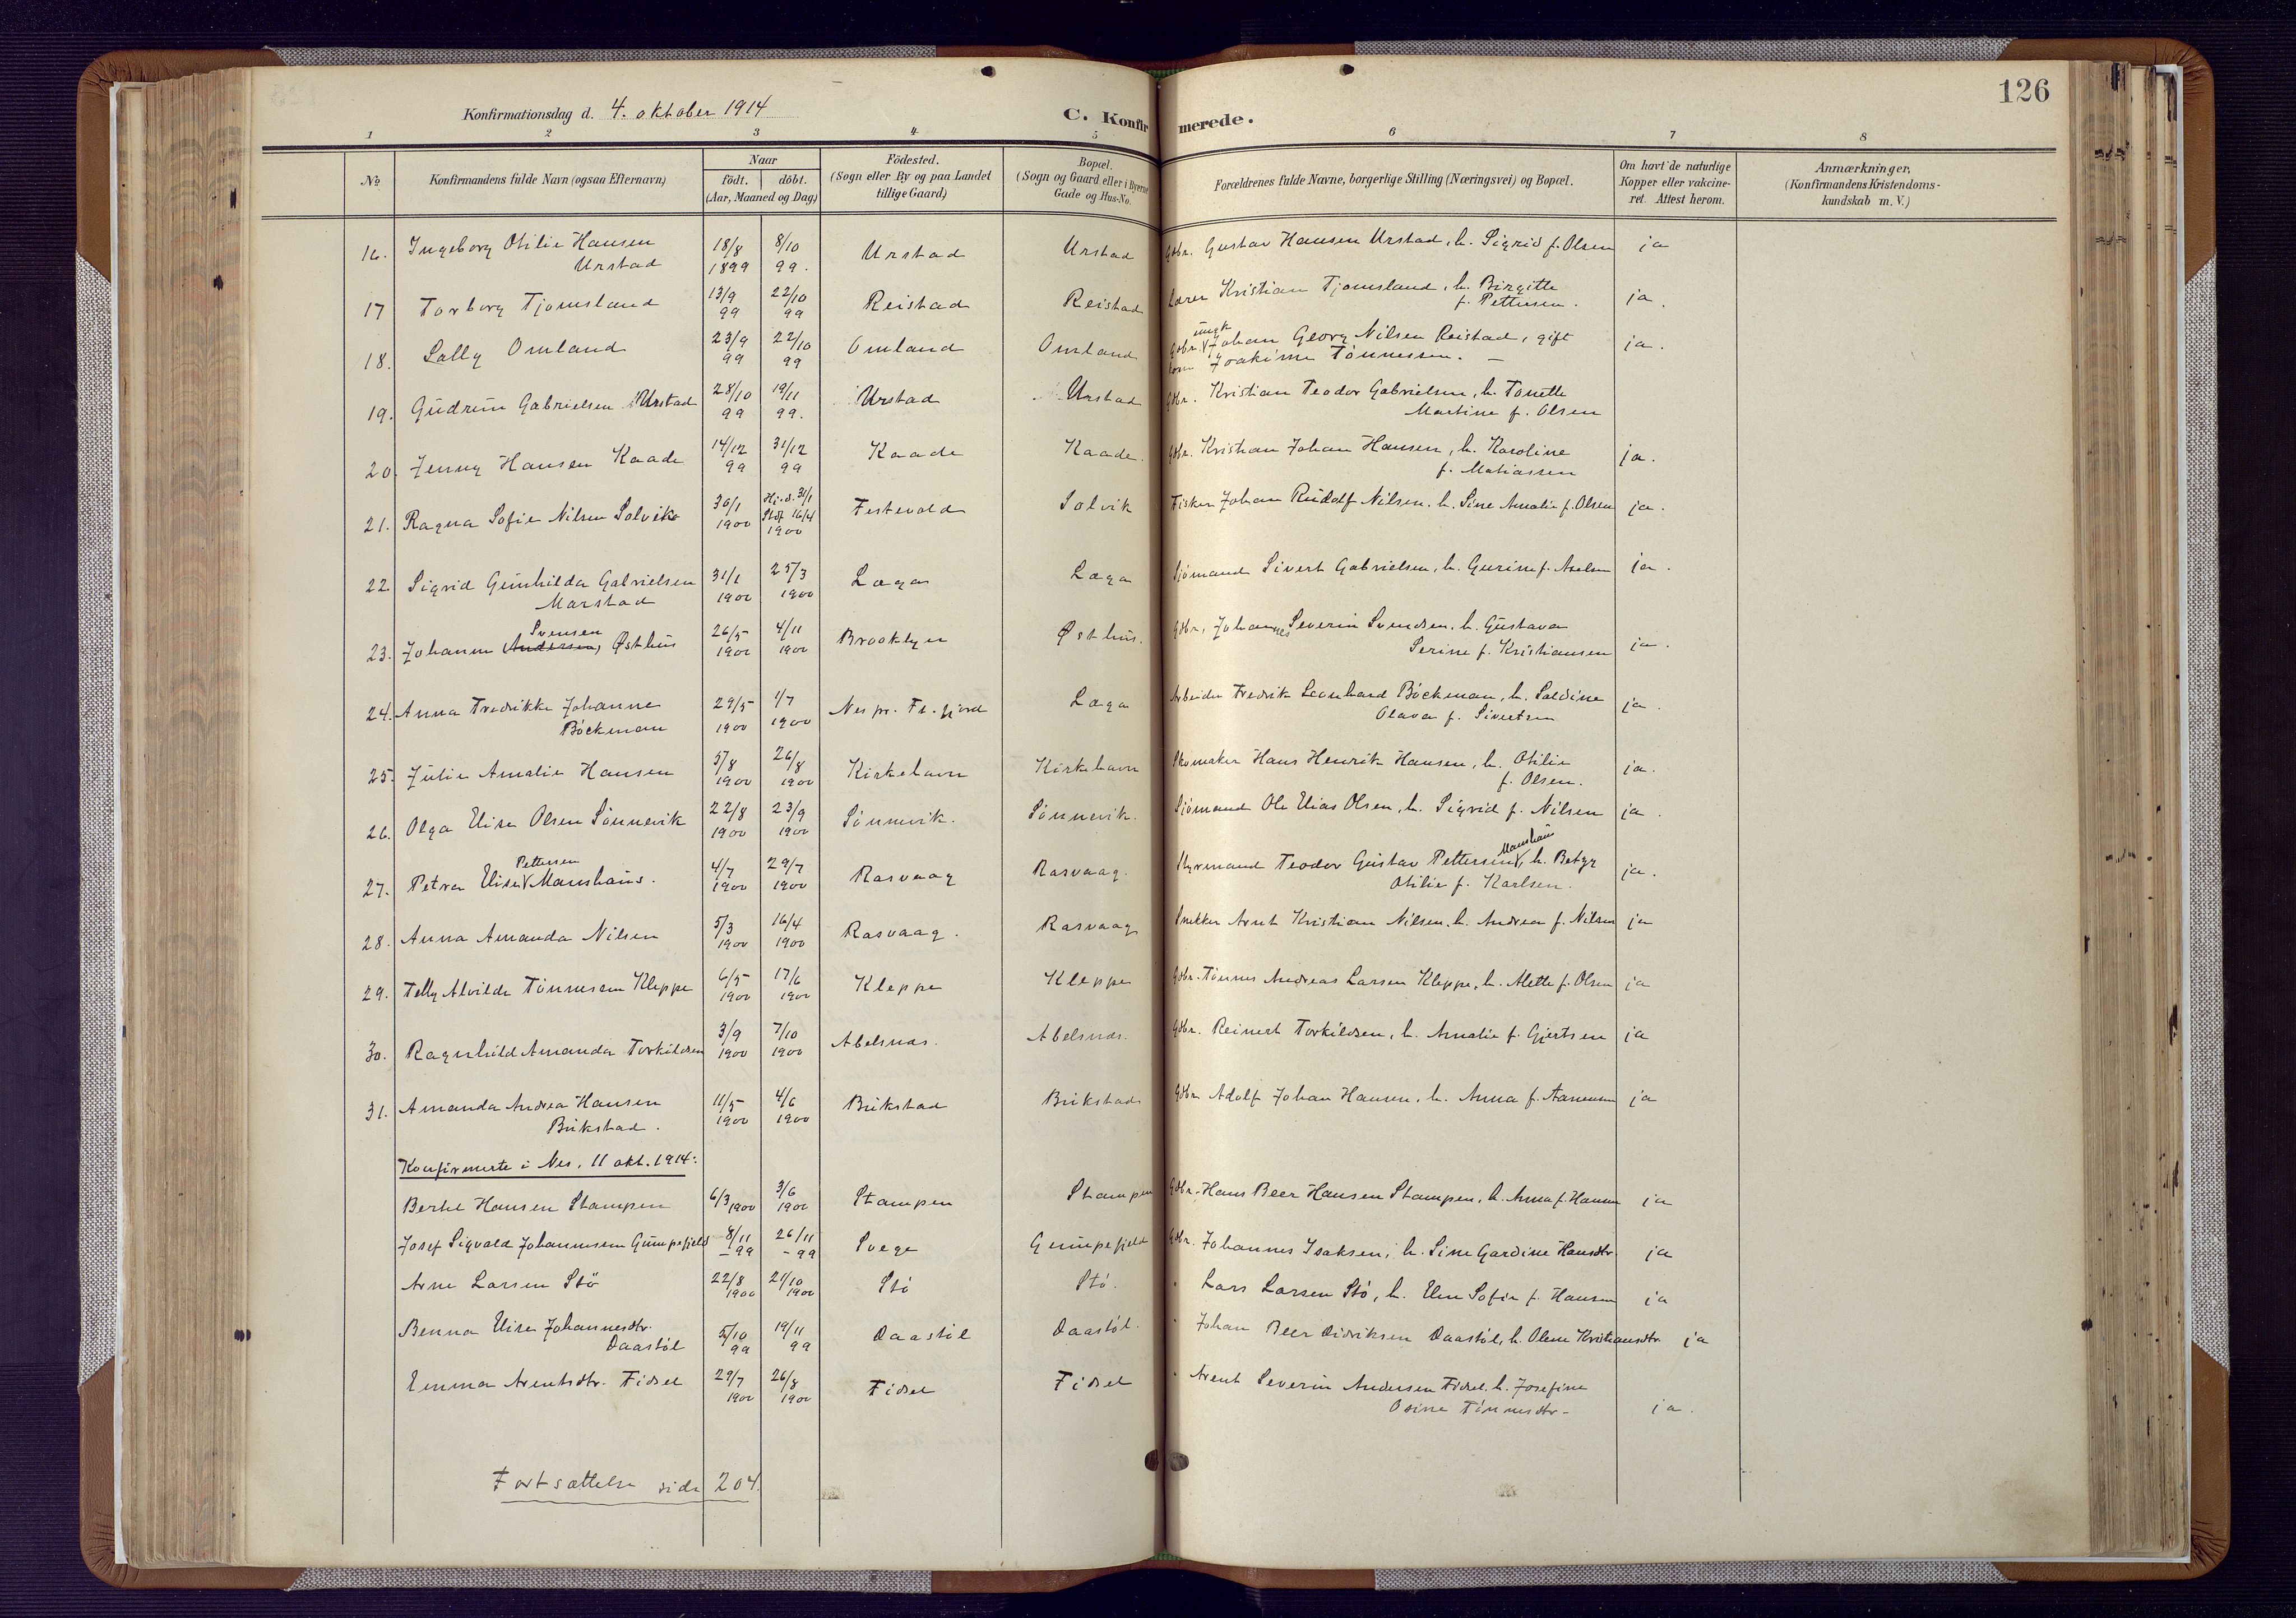 126
Konfirmationsdag d. 4. oktober 1914
C. Konfirmerede.
1 2 3 4 5 6 7 8
No Konfirmandens fulde Navn (ogsaa Efternavn) Naar födt. döbt. (Aar, Maaned og Dag) Födested. (Sogn eller By og paa Landet tillige Gaard) Bopæl. (Sogn og Gaard eller i Byerne Gade og Hus-No. Forældrenes fulde Navne, borgerlige Stilling (Næringsvei) og Bopæl. Om havt de naturlige Kopper eller vakcineret. Attest herom. Anmærkninger. (Konfirmandens Kristendomskundskab m. V.)
16. Ingeborg Otilie Hansen Urstad 18/8 1899 8/10 99. Urstad Urstad Gdbr. Gustav Hansen Urstad, h. Sigrid f. Olsen ja
17 Torborg Tjomsland 13/9 99 22/10 99 Reistad Reistad Lærer Kristian Tjomsland, h. Birgitte f. Pettersen. ja.
18. Sally Omland 23/9 99 22/10 99 Omland Omland Gdbr. ungk Johan Georg Nilsen Reistad, gift Joakime Tönnessen. – ja.
19. Gudrun Gabrielsen Urstad 28/10 99 19/11 99. Urstad Urstad Gdbr. Kristian Teodor Gabrielsen, h. Tonette Martine f. Olsen
20. Jenny Hansen Kaade 14/12 99 31/12 99 Kaade Kaade. Gdbr. Kristian Johan Hansen, h. Karoline f. Matiassen ja.
21. Ragna Sofie Nilsen Solvik 30/1 1900 Hj. d. 31/1 Stdf 16/4 1900 Festevold Solvik Fisker Johan Rudolf Nilsen. h. Sine Amalie f. Olsen ja.
22. Sigrid Gunhilda Gabrielsen Marstad 31/1 1900 25/3 1900 Læga Læga Sjömand Sivert Gabrielsen, h. Gurine f. Axelsen ja.
23. Johanne (Andersen) Svensen Østhus 26/5 1900 4/11 1900 Brooklyn Østhus. Gdbr. Johannes Severin Svendsen. h. Gustava Serine f. Kristiansen ja.
24. Anna Fredrikke Johanne Böckman 29/5 1900 1/7 1900 Nes pr. Fl. fjord Læga Arbeider Fredrik Leonhard Böckman, h. Saldine Olava f. Sivertsen ja.
25. Julie Amalie Hansen 5/8 1900 26/8 1900 Kirkehavn Kirkehavn Skomaker Hans Henrik Hansen, h. Otilie f. Olsen. ja.
26. Olga Elise Olsen Sönnevik 22/8 1900 23/9 1900 Sönnevik. Sönnevik. Sjömand Ole Elias Olsen, h. Sigrid f. Nilsen ja.
27. Petra Elise Pettersen Maushaus. 4/7 1900 29/7 1900 Rasvaag Rasvaag. Styrmand Teodor Gustav Pettersen Maushaus, h. Betzy Otilie f. Karlsen. ja.
28. Anna Amanda Nilsen 5/3 1900 16/4 1900 Rasvaag. Rasvaag Snekker Arent Kristian Nilsen. h. Andrea f. Nilsen ja
29. Telly Alvilde Tönnesen Kleppe 6/5 1900 17/6 1900 Kleppe Kleppe Gdbr. Tönnes Andreas Larsen Kleppe, h. Alette f. Olsen ja
30. Ragnhild Amanda Torkildsen 3/9 1900 7/10 1900 Abelsnæs. Abelsnæs. Gdbr. Reinert Torkildsen, h. Amalie f. Gjertsen ja
31. Amanda Andrea Hansen Bukstad. 11/5 1900 4/6 1900 Bukstad Bukstad Gdbr. Adolf Johan Hansen, h. Anna f. Aanensen ja
Konfirmerte i Nes, 11 okt. 1914:
Bertel Hansen Stampen 6/3 1900 3/6 1900 Stampen Stampen Gdbr. Hans Beer Hansen Stampen, h. Anna f. Hansen ja
Josef Sigvald Johannesen Gumpefjeld 8/11 -99 26/11 -99 Svege Gumpefjeld Gdbr. Johannes Isaksen, h. Sine Gardine Hansdtr. ja
Arne Larsen Stö 22/8 1900 21/10 1900 Stö Stö. " Lars Larsen Stö, h. Elen Sofie f. Hansen ja
Benna Elise Johannesdtr. Daastöl 5/10 99 19/11 99 Daastöl Daastöl. " Johan Beer Didriksen Daastöl, h. Olene Kristiansdtr. ja
Emma Arentsdtr. Fidsel 29/7 1900 26/8 1900 Fidsel Fidsel " Arent Severin Andersen Fidsel. h. Josefine Osine Tönnesdtr- ja.
Fortsættelse side 204.